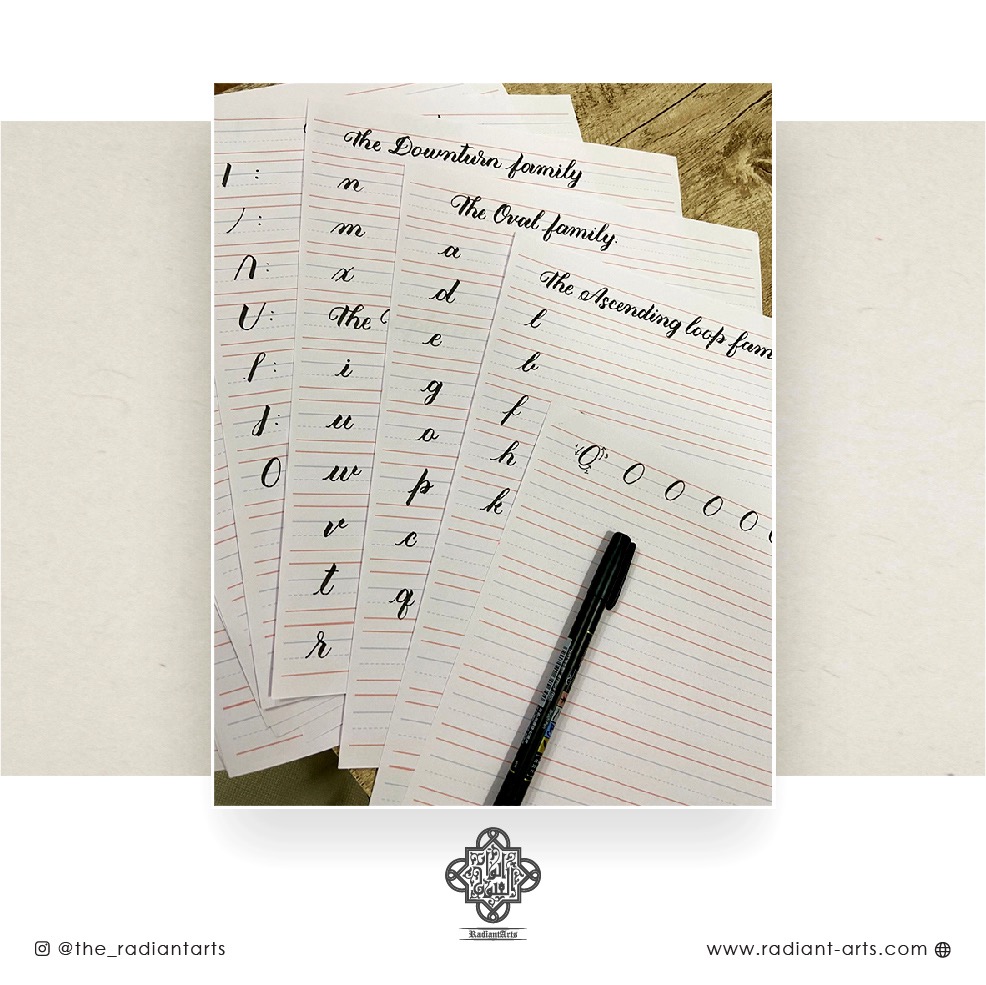 I :
/ :
Λ :
U :
ʃ :
J :
O
The Downturn family
n
m
x
The
i
u
w
v
t
r
The Oval family.
a
d
e
g
o
p
c
q
The Ascending loop fam
l
b
f
h
k
O O O O O
RadiantArts
@the_radiantarts
www.radiant-arts.com